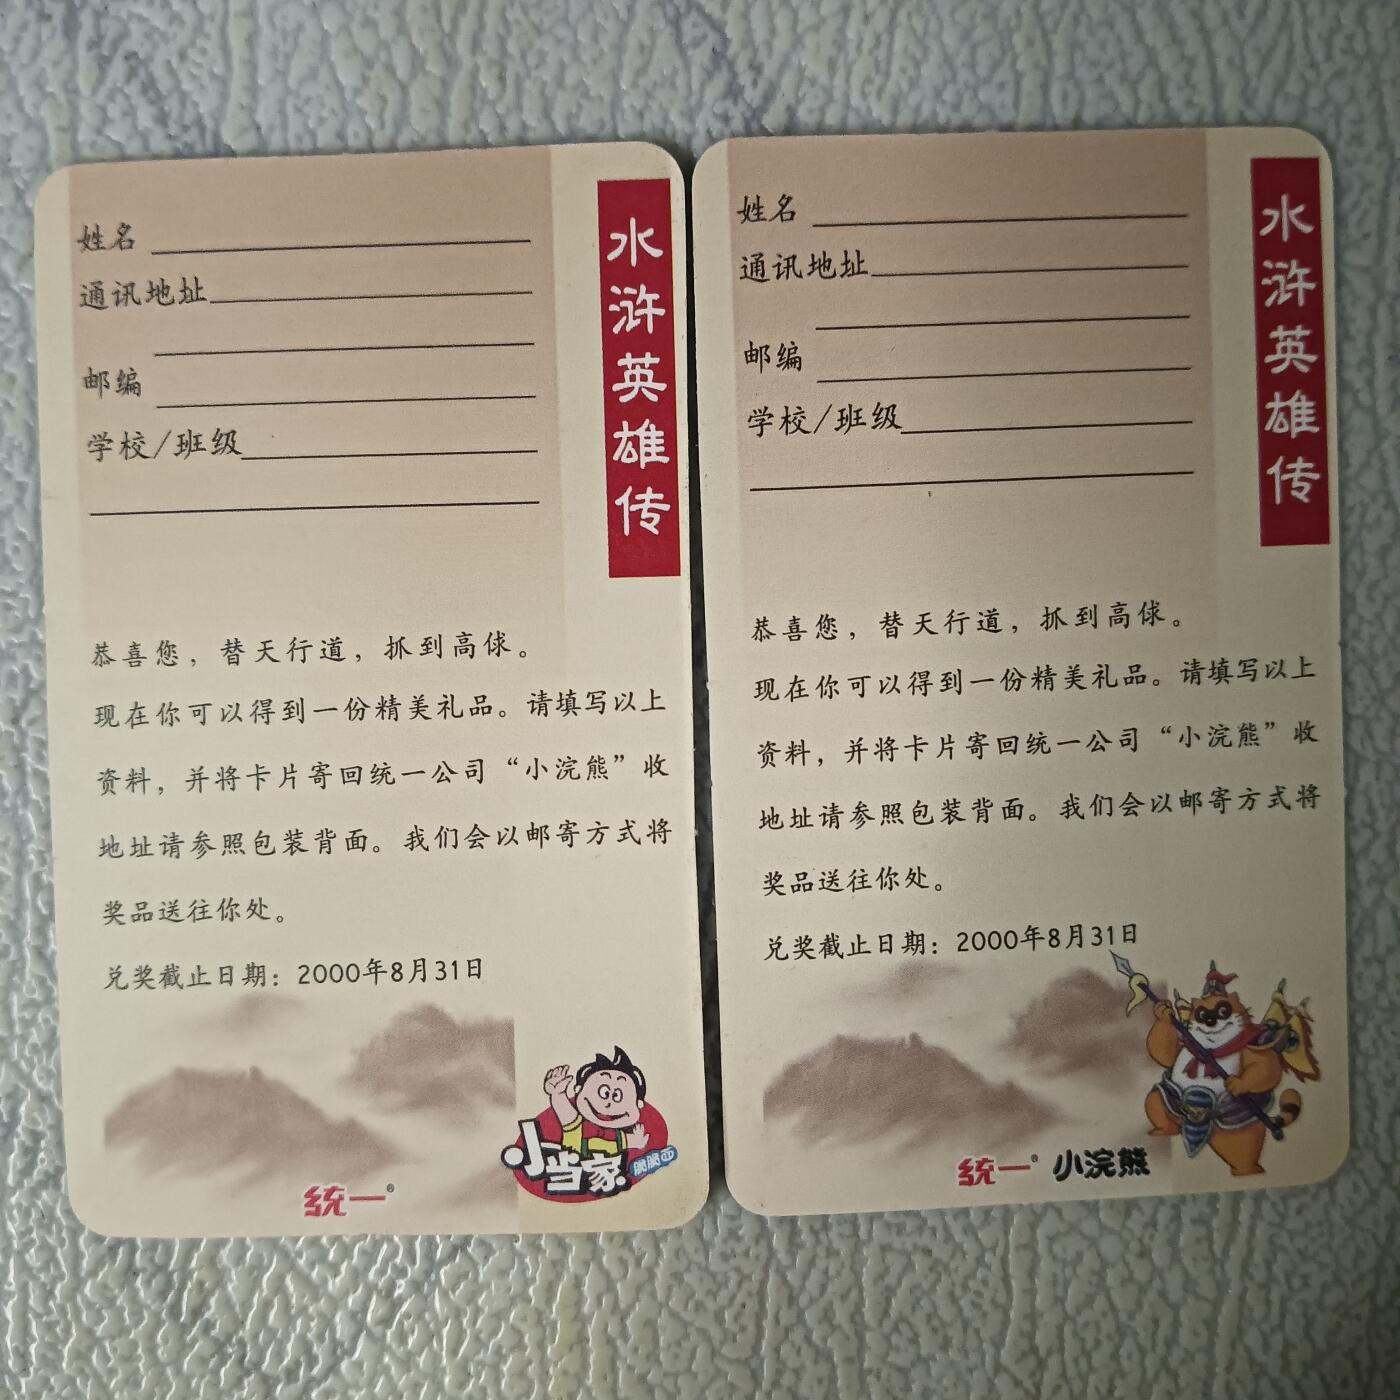 姓名
通讯地址
邮编
学校/班级
水浒英雄传
恭喜您，替天行道，抓到高俅。
现在你可以得到一份精美礼品。请填写以上
资料，并将卡片寄回统一公司“小浣熊”收
地址请参照包装背面。我们会以邮寄方式将
奖品送往你处。
兑奖截止日期：2000年8月31日
小当家
脆脆面
统一®
姓名
通讯地址
邮编
学校/班级
水浒英雄传
恭喜您，替天行道，抓到高俅。
现在你可以得到一份精美礼品。请填写以上
资料，并将卡片寄回统一公司“小浣熊”收
地址请参照包装背面。我们会以邮寄方式将
奖品送往你处。
兑奖截止日期：2000年8月31日
统一® 小浣熊